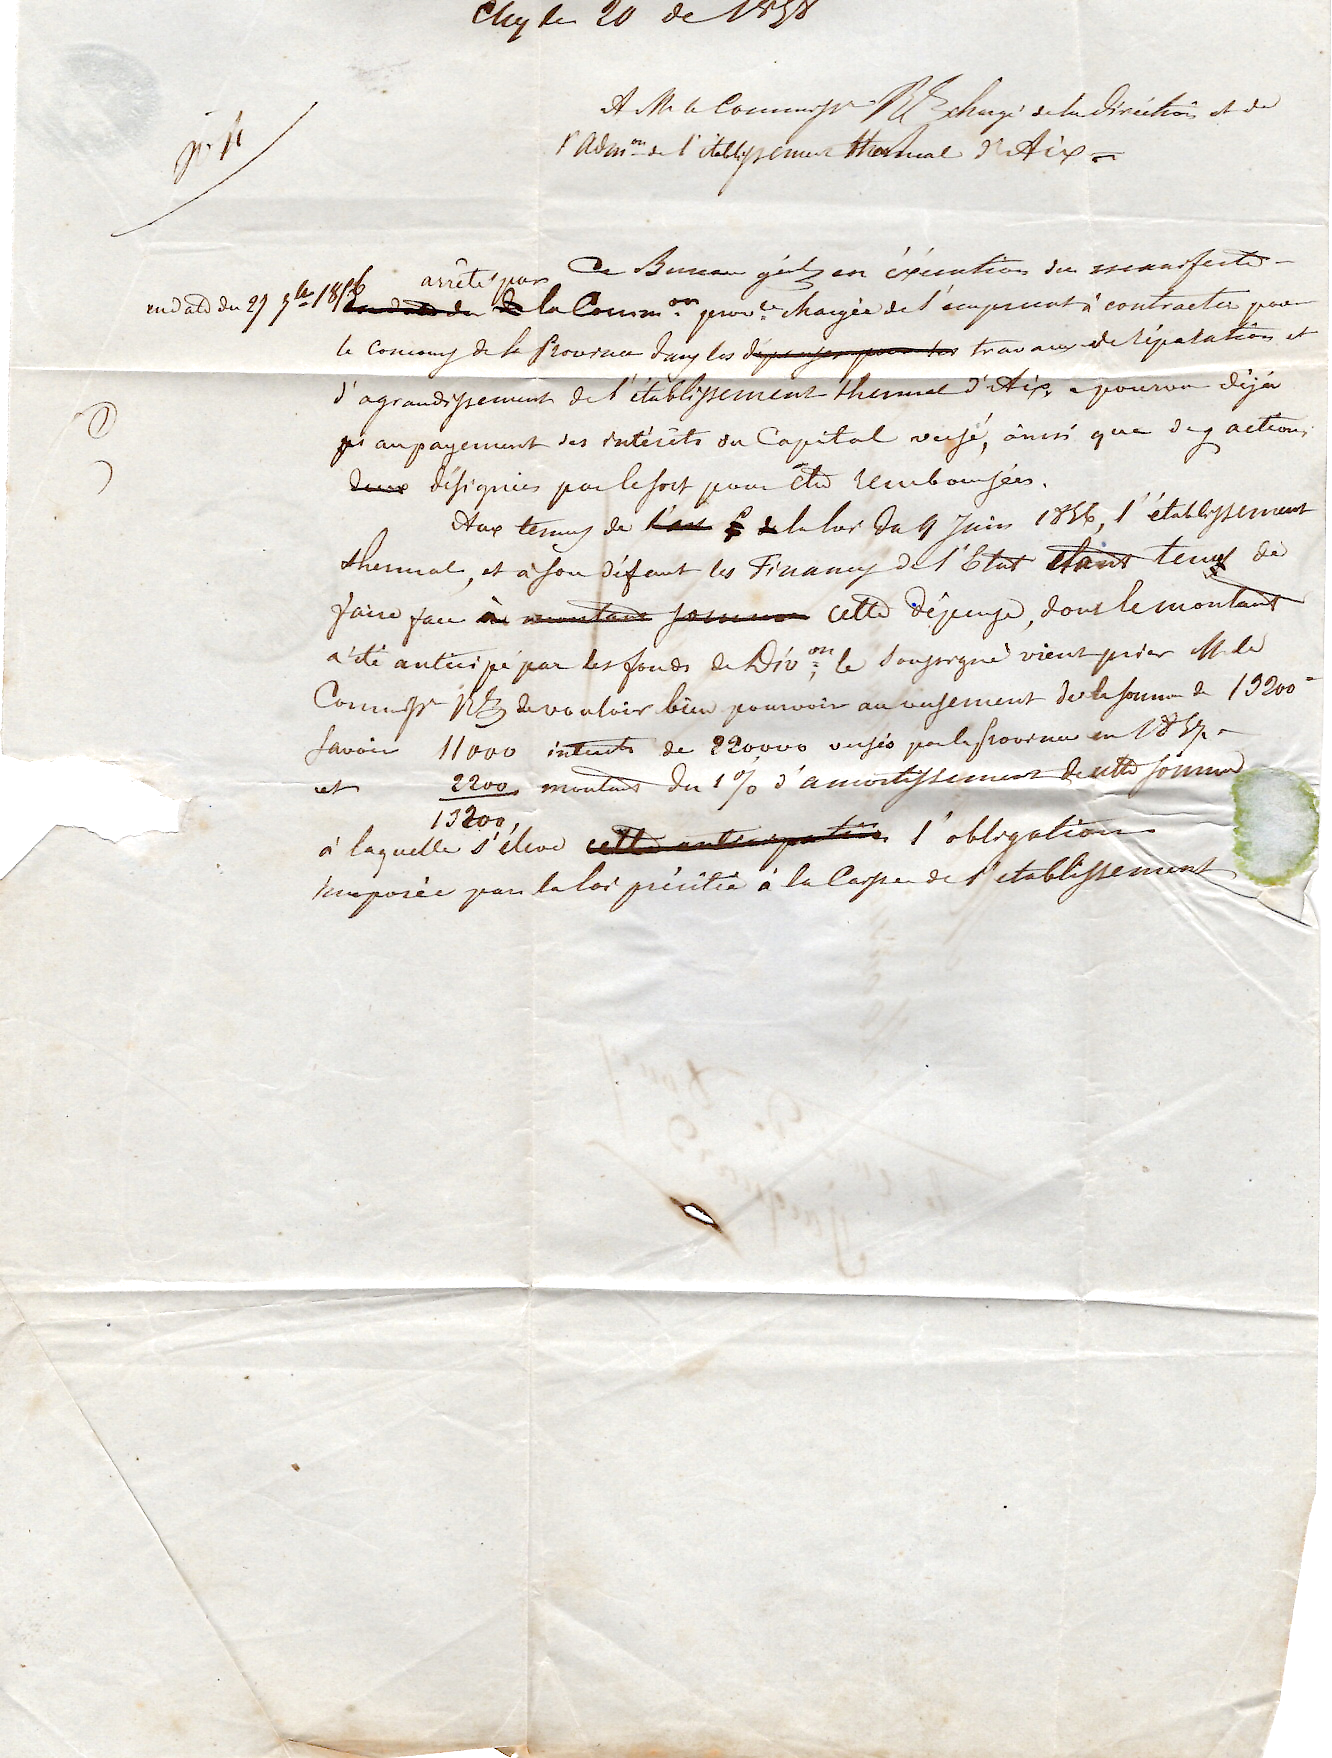 Chy le 20 de 1858
A Mr le Commissre Rl chargé de la direction et de
l'Admon de l'établissement thermal d'Aix =
arrêté par Ce Bureau géal en éxécution du manifeste
en date du 27 7bre 1856 en date du de la Common provle chargée de l'emprunt à contracter pour
le concours de la Province dans les dépenses pour les travaux de réparation et
d'agrandissement de l'établissement thermal d'Aix, a pourvu déjà
au payement des intérêts du Capital versé, ainsi que des actions
désignées par le sort pour être remboursées.
Aux termes de l'art de la loi du 9 Juin 1856, l'établissement
thermal, et à son défaut les Finances de l'Etat étant tenus de
faire face à montant somme cette dépense, dont le montant
a été anticipé par les fonds de Divon, le soussigné vient prier M. le
Commissre Rl de vouloir bien pourvoir au versement de la somme de 13200
Savoir 11000 intérêts de 220,000 versés par la province en 1857
et 2200 montant du 1 % d'amortissement de cette somme
13200,
à laquelle s'élève cette anticipation l'obligation
imposée par la loi précitée à la Caisse de l'établissement